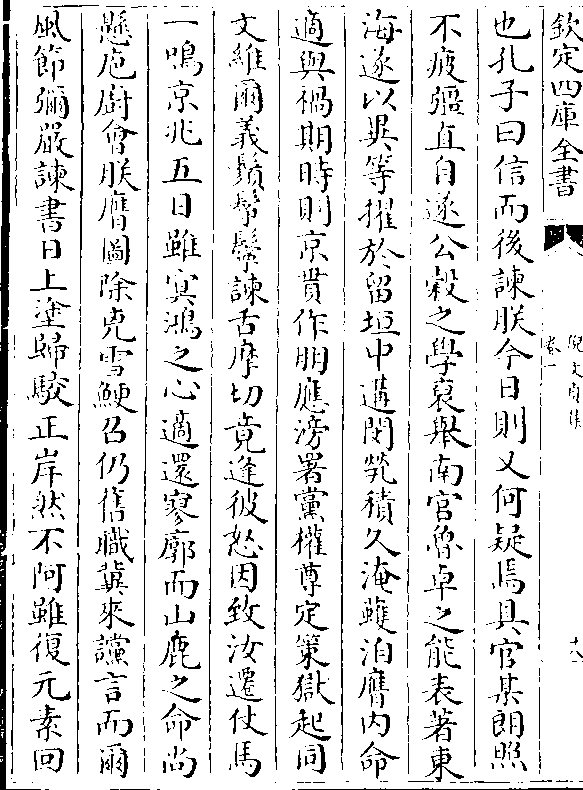 欽定四庫全書
倪文貞集
卷一
十八
也孔子曰信而後諫朕今日則又何疑焉具官某朗照
不疲彊直自遂公穀之學裒舉南官魯卓之能表著東
海遂以異等擢於留垣中遘閔煢積久淹蠖洎膺内命
適與禍期時則京貫作朋應滂署黨權尊定策獄起同
文維爾義鬚髼鬆諫舌摩切竟逢彼怒因致汝遷仗馬
一鳴京兆五日雖寘鴻之心適還寥廓而山鹿之命尚
懸庖廚會朕膺圖除兇雪鯁召仍舊職冀來讜言而爾
風節彌嚴諫書日上塗歸駮正岸然不阿雖復元素回